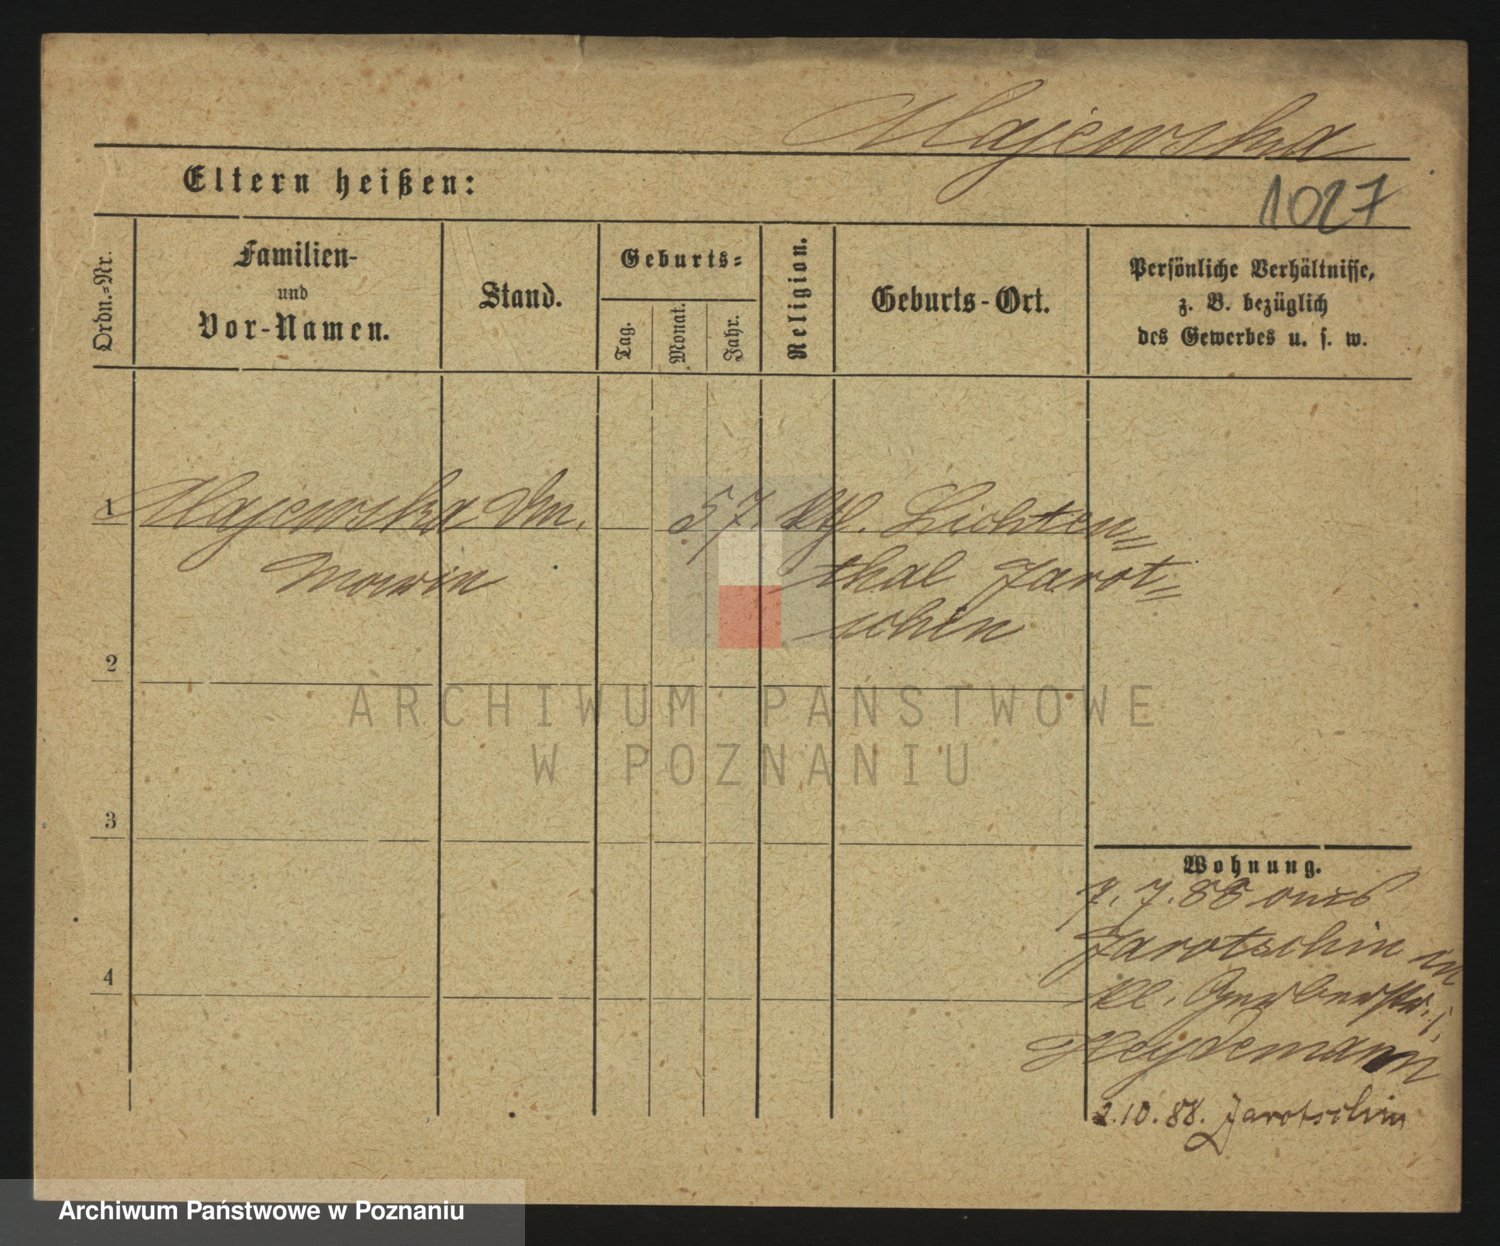 Majewska
Eltern heißen:
1027
Ordn.-Nr.
Familien-
und
Vor-Namen.
Stand.
Geburts-
Tag.
Monat.
Jahr.
Religion.
Geburts-Ort.
Persönliche Verhältnisse,
z. B. bezüglich
des Gewerbes u. s. w.
1 Majewska 57. kth. Lichten=
thal Jarot=
schin
2
ARCHIWUM PAŃSTWOWE
W POZNANIU
3
Wohnung.
7. 7. 88 aus
Jarotschin in
Kl. Gerberstr.
Heydemann
4
2.10.88. Jarotschin
Archiwum Państwowe w Poznaniu